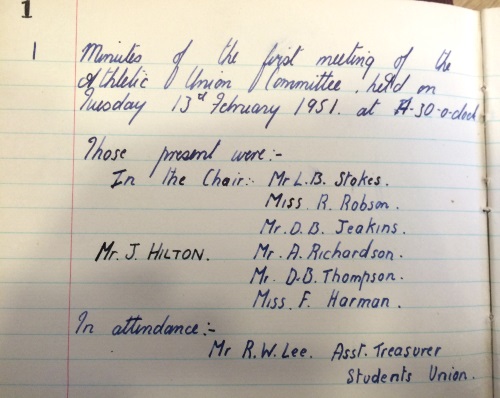 1
1 Minutes of the first meeting of the
Athletic Union Committee, held on
Tuesday 13th February 1951. at 4-30-o-clock
Those present were:-
In the Chair:- Mr L.B. Stokes.
Miss. R. Robson.
Mr. D.B. Jeakins.
Mr. J. HILTON. Mr. A. Richardson.
Mr. D.B. Thompson.
Miss. F. Harman.
In attendance:-
Mr R.W. Lee. Asst. Treasurer
Students Union.